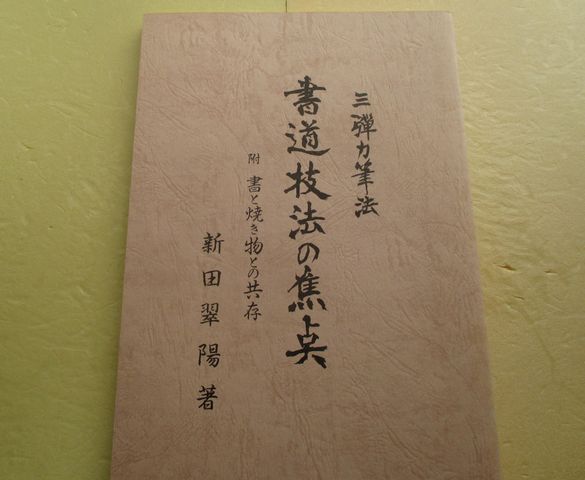 三彈力筆法
書道技法の焦点
附 書と焼き物との共存
新田翠陽著